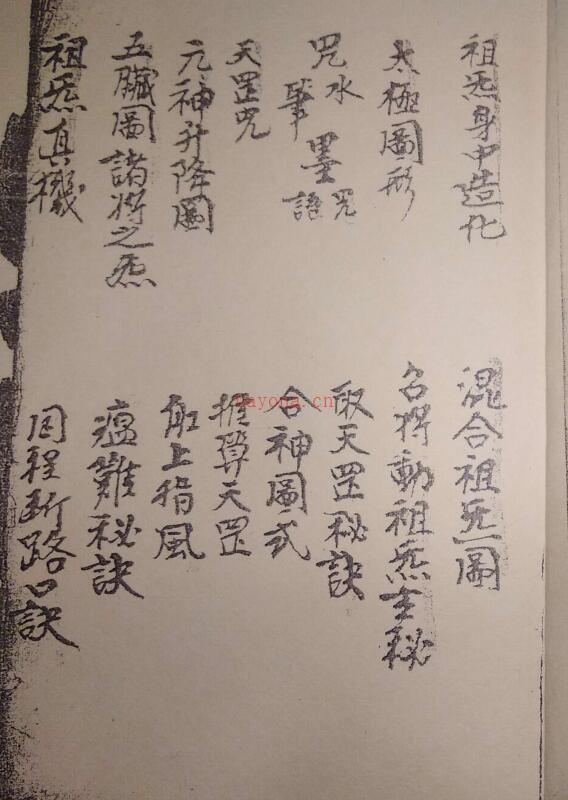 祖炁身中造化
太極圖形
咒水
筆墨咒語
天罡咒
元神升降圖
五臟圖諸将之炁
祖炁真機
混合祖炁圖
召将動祖炁玄秘
取天罡秘訣
合神圖式
推算天罡
上指風
瘟難秘訣
断路口訣
nayona.cn